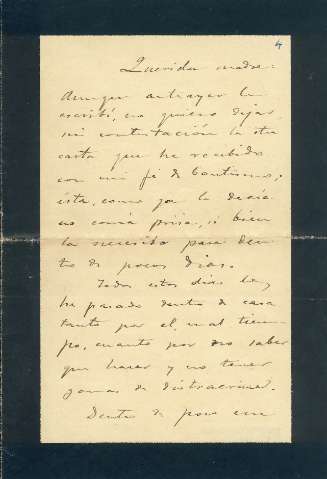 4
Querida madre:
Aunque anteayer le
escribí, no quiero dejar
sin contestación la otra
carta que he recibido
con mi fé de bautismo;
ésta, como ya le decía
no corría prisa, si bien
la necesito para den-
tro de pocos días.
Todos estos días los
he pasado dentro de casa
tanto por el mal tiem-
po, cuanto por no saber
que hacer y no tener
ganas de distracciones.
Dentro de poco em